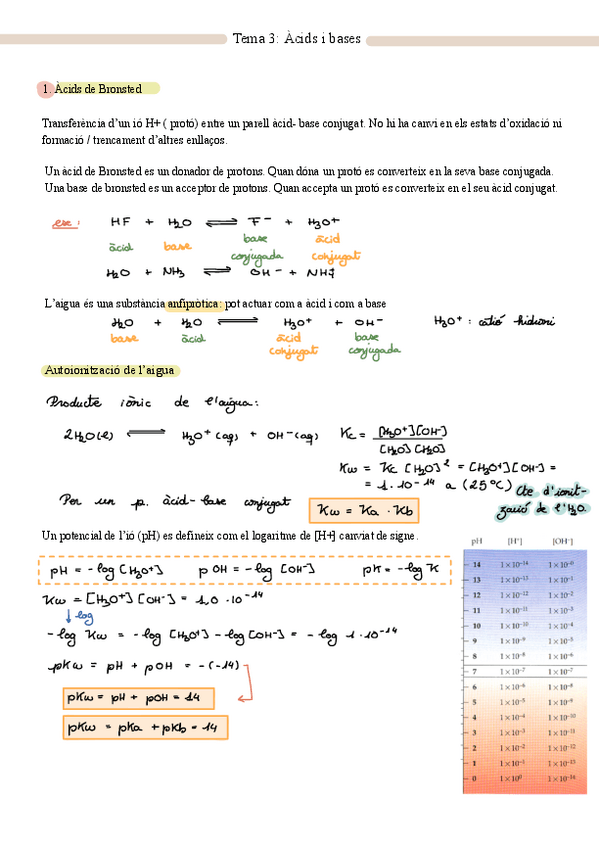 Tema 3: Àcids i bases
1. Àcids de Bronsted
Transferència d'un ió H+ ( protó) entre un parell àcid- base conjugat. No hi ha canvi en els estats d'oxidació ni
formació / trencament d'altres enllaços.
Un àcid de Bronsted es un donador de protons. Quan dóna un protó es converteix en la seva base conjugada.
Una base de bronsted es un acceptor de protons. Quan accepta un protó es converteix en el seu àcid conjugat.
ex: HF + H₂O ⇌ F⁻ + H₃O⁺
àcid base base conjugada àcid conjugat
H₂O + NH₃ ⇌ OH⁻ + NH₄⁺
L'aigua és una substància anfipròtica: pot actuar com a àcid i com a base
H₂O + H₂O ⇌ H₃O⁺ + OH⁻ H₃O⁺ : catió hidroni
base àcid àcid conjugat base conjugada
Autoionització de l'aigua
Producte iònic de l'aigua:
2H₂O(l) ⇌ H₃O⁺(aq) + OH⁻(aq) Kc = [H₃O⁺][OH⁻] / [H₂O][H₂O]
Kw = Kc [H₂O]² = [H₃O⁺][OH⁻] =
= 1·10⁻¹⁴ a (25ºC) Cte d'ionit-
zació de l'H₂O.
Per un p. àcid-base conjugat Kw = Ka · Kb
Un potencial de l'ió (pH) es defineix com el logaritme de [H+] canviat de signe.
pH = -log [H₃O⁺] pOH = -log [OH⁻] pK = -log K
Kw = [H₃O⁺][OH⁻] = 1,0 · 10⁻¹⁴
↓ log
-log Kw = -log [H₃O⁺] - log [OH⁻] = - log 1·10⁻¹⁴
pKw = pH + pOH = -(-14)
pKw = pH + pOH = 14
pKw = pKa + pKb = 14
pH [H⁺] [OH⁻]
14 1×10⁻¹⁴ 1×10⁻⁰
13 1×10⁻¹³ 1×10⁻¹
12 1×10⁻¹² 1×10⁻²
11 1×10⁻¹¹ 1×10⁻³
10 1×10⁻¹⁰ 1×10⁻⁴
9 1×10⁻⁹ 1×10⁻⁵
8 1×10⁻⁸ 1×10⁻⁶
7 1×10⁻⁷ 1×10⁻⁷
6 1×10⁻⁶ 1×10⁻⁸
5 1×10⁻⁵ 1×10⁻⁹
4 1×10⁻⁴ 1×10⁻¹⁰
3 1×10⁻³ 1×10⁻¹¹
2 1×10⁻² 1×10⁻¹²
1 1×10⁻¹ 1×10⁻¹³
0 1×10⁰ 1×10⁻¹⁴